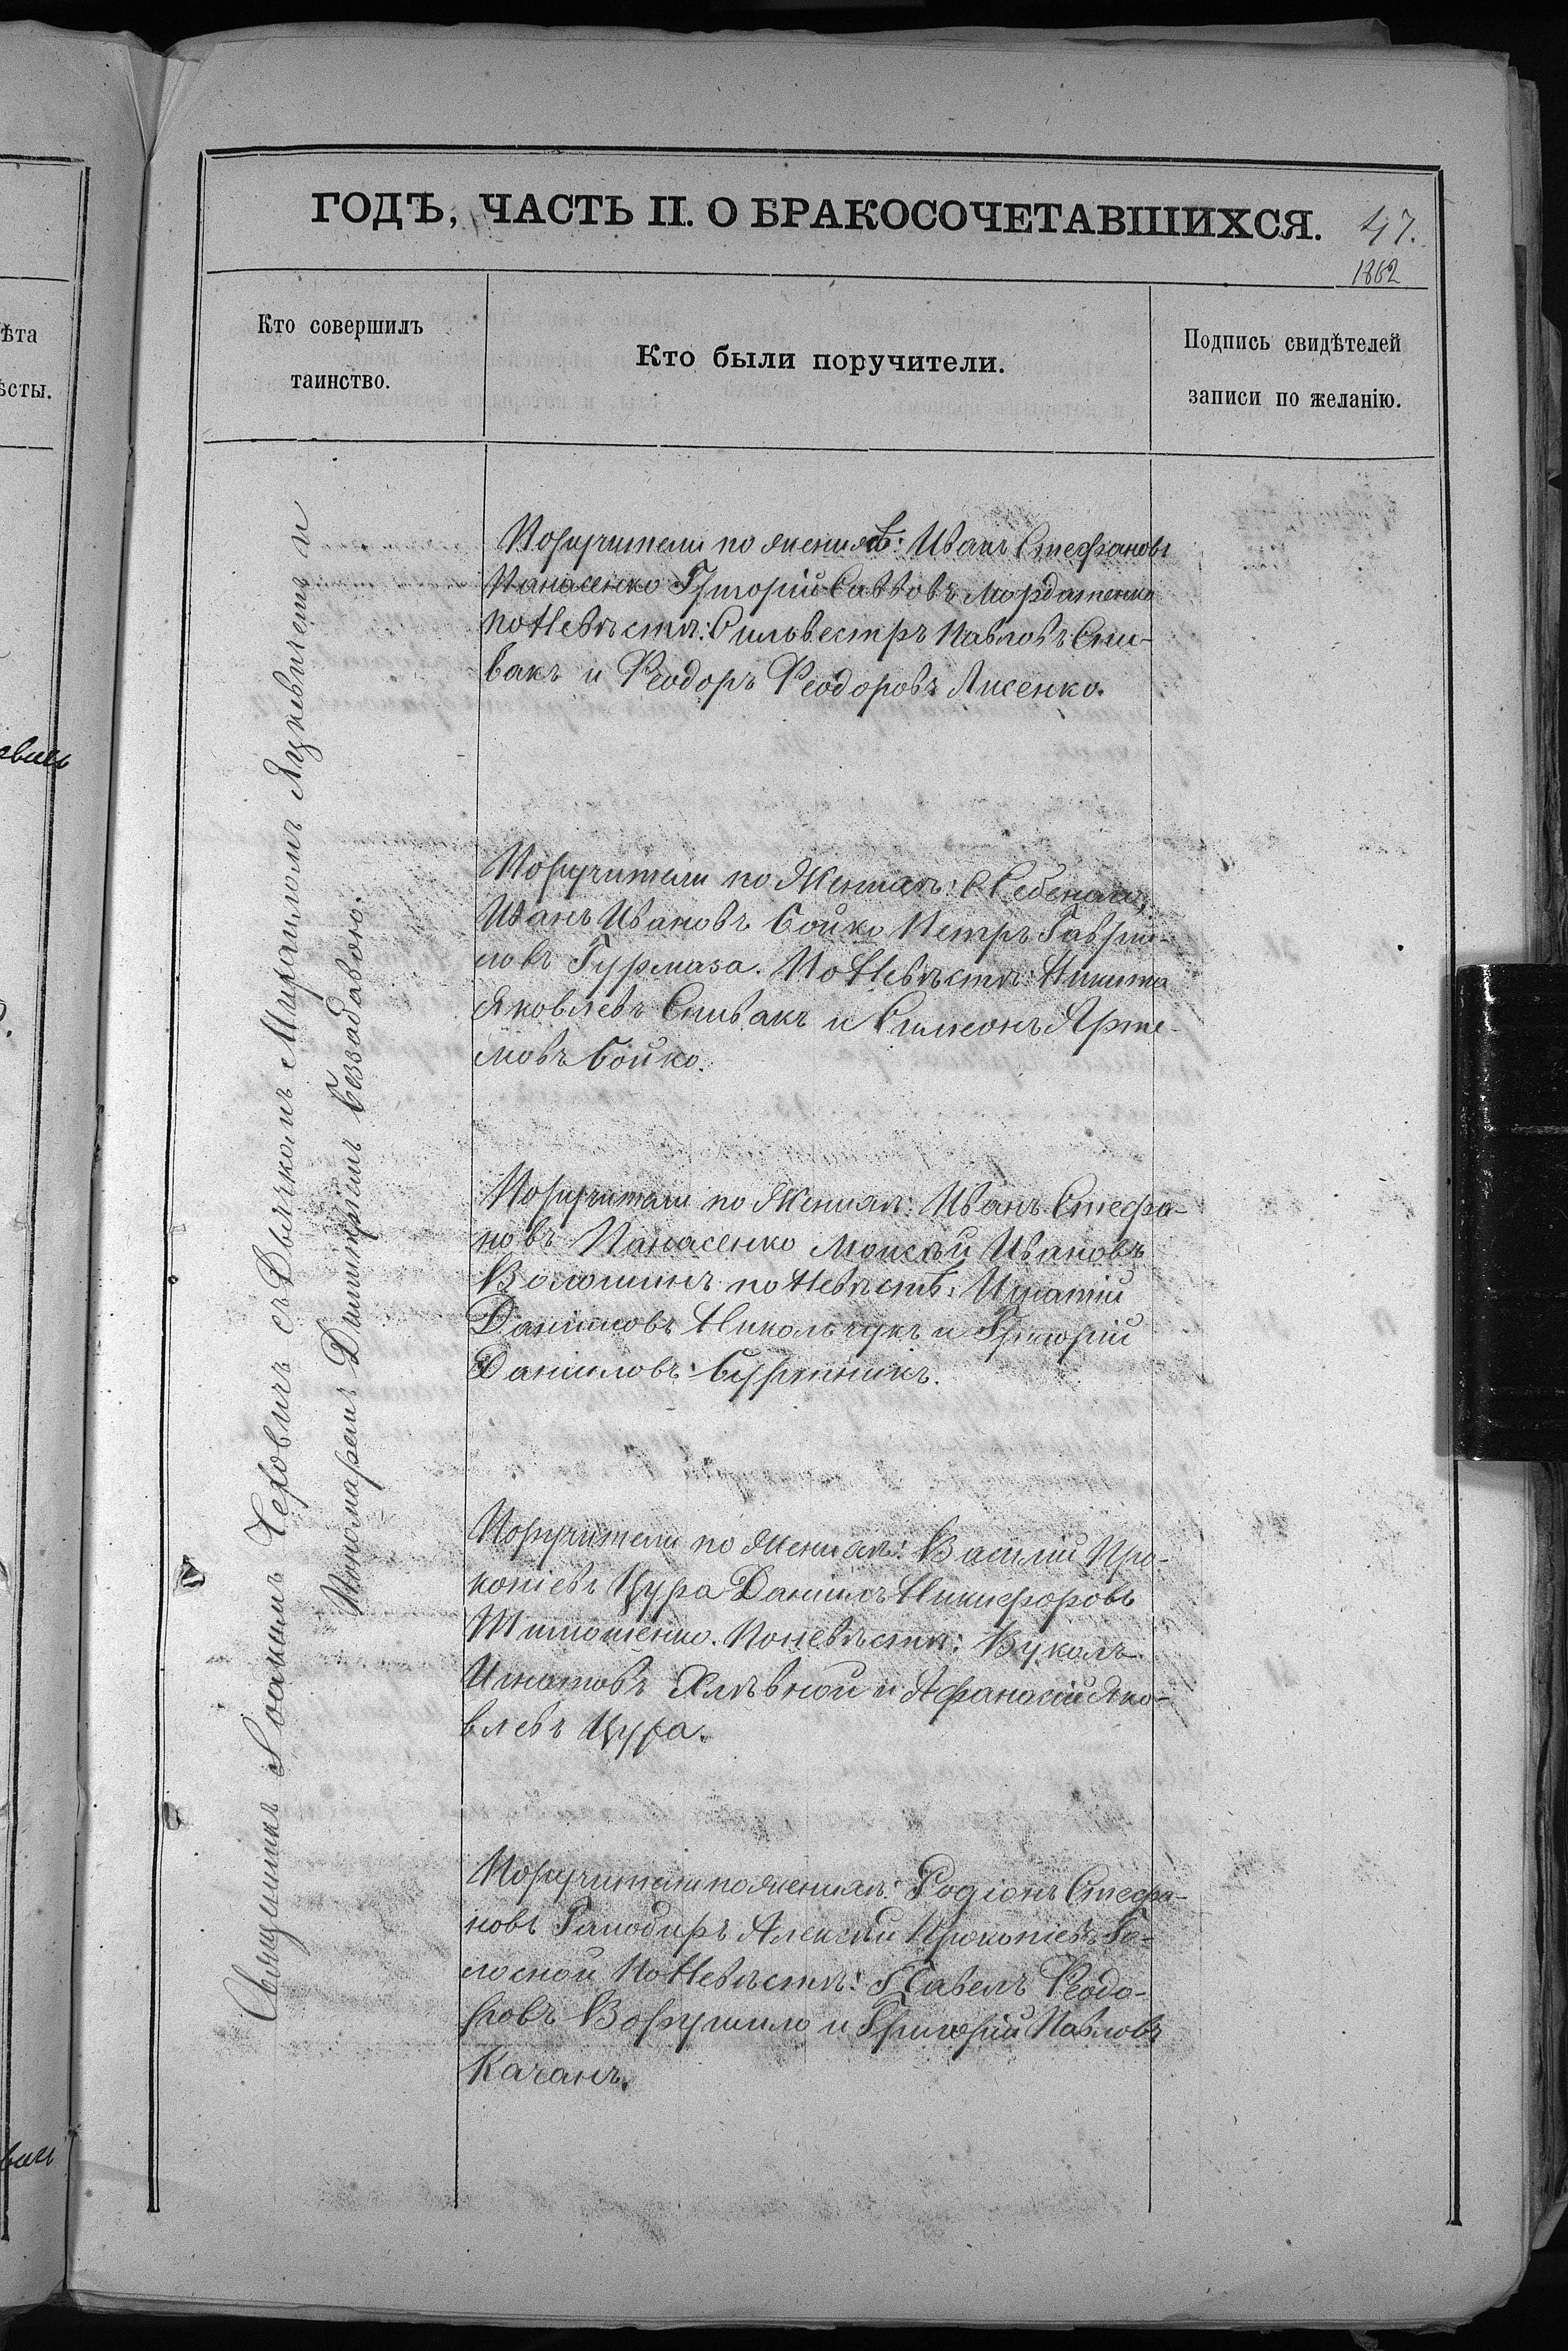 ГОДЪ, ЧАСТЬ II. О БРАКОСОЧЕТАВШИХСЯ.
47.
1862
Кто совершилъ
таинство.
Кто были поручители.
Подпись свидѣтелей
записи по желанію.
ѣта
ѣсты.
Священникъ Іоаннъ Чеховичъ съ Дьячкомъ Михаиломъ Яцкевичемъ и
Пономаремъ Димитріемъ Беззадавою.
Поручители по женихѣ: Иванъ Стефановъ
Панасенко Григорій Саввовъ Мордатенко
по Невѣстѣ: Сильвестръ Павловъ Спи-
вакъ и Ѳеодоръ Ѳеодоровъ Лисенко.
Поручители по Женихѣ:
Иванъ Ивановъ Бойко Петръ Гаврiи-
ловъ Гурмаза. По Невѣстѣ: Никита
Яковлевъ Спивакъ и Симеонъ Арте-
мовъ Бойко.
Поручители по Женихѣ: Иванъ Стефа-
новъ Панасенко Моисѣй Ивановъ
Волошинъ по Невѣстѣ: Игнатій
Даниловъ Никольчукъ и Григорій
Даниловъ: Буртникъ.
Поручители по Женихѣ: Василій Про-
копіевъ Цура Даніилъ Никифоровъ
Тимошенко. По невѣстѣ: Вуколъ
Игнатовъ Хлѣвной и Афанасій Яко-
влевъ Цура.
Поручители по женихѣ: Родіонъ Стефа-
новъ Алексѣй Прокопіевъ Го-
лосной По Невѣстѣ: Павелъ Ѳеодо-
ровъ Ворушило и Григорій Павловъ
Качанъ.